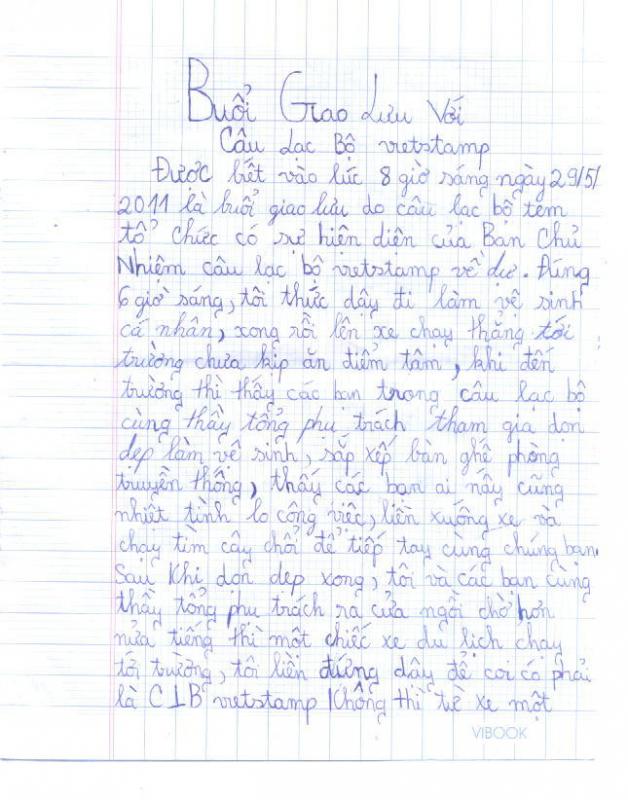 Buổi Giao Lưu Với
Câu Lạc Bộ vietstamp
Được biết vào lúc 8 giờ sáng ngày 29/5/
2011 là buổi giao lưu do câu lạc bộ tem
tổ chức có sự hiện diện của Ban Chủ
Nhiệm câu lạc bộ vietstamp về dự. Đúng
6 giờ sáng, tôi thức dậy đi làm vệ sinh
cá nhân, xong rồi lên xe chạy thẳng tới
trường chưa kịp ăn điểm tâm, khi đến
trường thì thấy các bạn trong câu lạc bộ
cùng thầy tổng phụ trách tham gia dọn
dẹp làm vệ sinh, sắp xếp bàn ghế phòng
truyền thống, thấy các bạn ai nấy cũng
nhiệt tình lo công việc, liền xuống xe và
chạy tìm cây chổi để tiếp tay cùng chúng bạn.
Sau khi dọn dẹp xong, tôi và các bạn cùng
thầy tổng phụ trách ra cửa ngồi chờ hơn
nửa tiếng thì một chiếc xe du lịch chạy
tới trường, tôi liền đứng dậy để coi có phải
là CLB vietstamp không thì từ xe một
VIBOOK